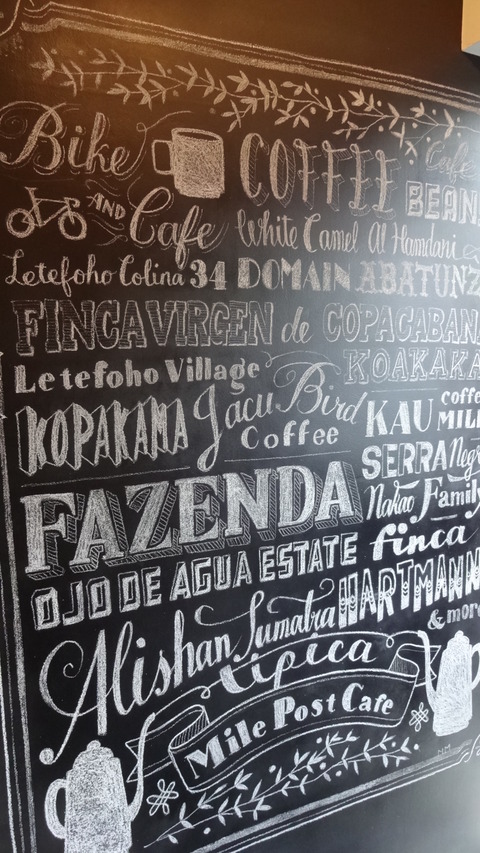 Bike COFFEE Café
AND Cafe BEAN
White Camel Al Hamdani
Letefoho Colina 34 DOMAIN ABATUNZ
FINCA VIRGEN de COPACABAN
Letefoho Village KOAKAKA
KOPAKAMA Jacu Bird Coffee KAU coffe MIL
SERRA Negr
FAZENDA Nakao Family
OJO DE AGUA ESTATE finca
Alishan Sumatra HARTMANN
& more
tipica
Mile Post Cafe
NM